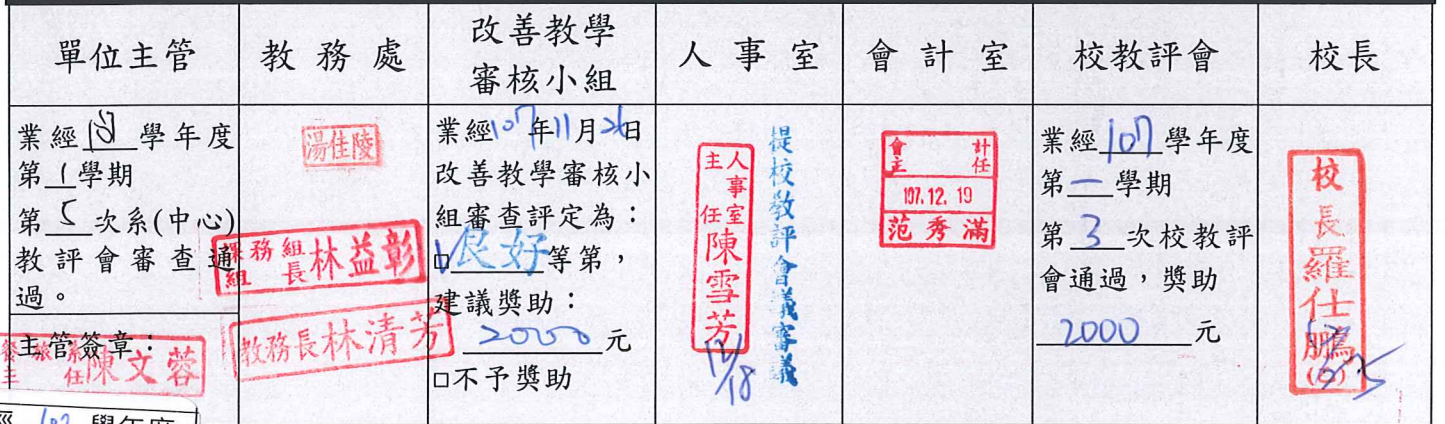 單位主管
教務處
改善教學
審核小組
人事室
會計室
校教評會
校長
業經 學年度
第1學期
第5次系(中心)
教評會審查通
過。
主管簽章:
餐旅系
主任 陳文蓉
學年度
湯佳陵
課務組
組長 林益彰
教務長林清芳
業經107年11月26日
改善教學審核小
組審查評定為:
□良好等第,
建議獎助:
2000元
□不予獎助
人事室
主任 陳雪芳
12/18
提校教評會議審議
會計
主任
107.12.19
范秀滿
業經107學年度
第一學期
第3次校教評
會通過,獎助
2000元
校長羅仕鵬